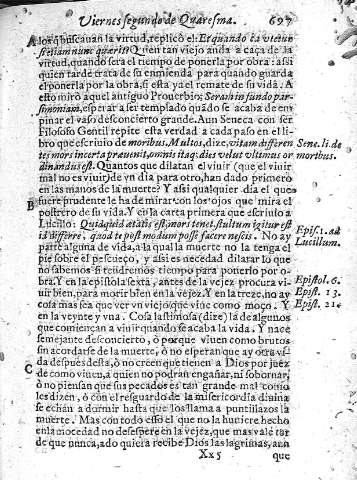 Viernes segundo de Quaresma. 697
A los q̃ buscauan la virtud, replicò el: Et quando ea vtetur
si etiam nunc quærit? Quien tan viejo anda a caça de la
virtud, quando serà el tiempo de ponerla por obra: assi
quien tarde trata de su enmienda para quando guarda
el ponerla por la obra, si esta ya el remate de su vida. A
esto mirò aquel antiguo Prouerbio; Sera in fundo par-
simoniam, esperar a ser templado quãdo se acaba de em
pinar el vaso desconcierto grande. Aun Seneca con ser
Filosofo Gentil repite esta verdad a cada paso en el li-
bro que escriuio de moribus. Multos, dize, vitam differen
tes mors incerta præuenit, omnis itaq; dies velut vltimus or
dinandus est. Quantos que dilatan el viuir (que el viuir
mal no es viuir) de vn dia para otro, han dado primero
en las manos de la muerte? Y assi qualquier dia el que
B fuere prudente le ha de mirar con los ojos que mira el
postrero de su vida. Y en la carta primera que escriuio a
Lucilo: Quidquid ætatis est mors tenet, stultum igitur est
id differre, quod te post modum posse facere nescis. No ay
parte alguna de vida, a la qual la muerte no la tenga el
pie sobre el pescueço, y assi es necedad dilatar lo que
no sabemos si tendremos tiempo para ponerlo por o-
bra. Y en la epistola sexta, antes de la vejez procura vi-
uir bien, para morir bien en la vejez. Y en la treze, no ay
cosa mas fea que ver vn viejo que viue como moço. Y
en la veynte y vna. Cosa lastimosa (dize) la de algunos
que comiençan a viuir quando se acaba la vida. Y nace
semejante desconcierto, ò porque viuen como brutos
sin acordarse de la muerte, ò no esperan que ay otra vi-
da despues desta, ò no creen que tienen a Dios por juez
C de como viuen, a quien no podran engañar, ni sobornar,
ò no piensan que sus pecados es tan grande mal como
les dizen, ò con el resguardo de la misericordia diuina
se echan a dormir hasta que los llama a puntillazos la
muerte. Mas con todo esso el que no la huuiere hecho
en la mocedad no desespere en la vejez, que mas vale tar
de que nunca, a do quiera recibe Dios las lagrimas, aun
Xx 5 que
Sene. li. de
moribus.
Epis. 1. ad
Lucillum.
Epistol. 6.
Epist. 13.
Epist. 21.